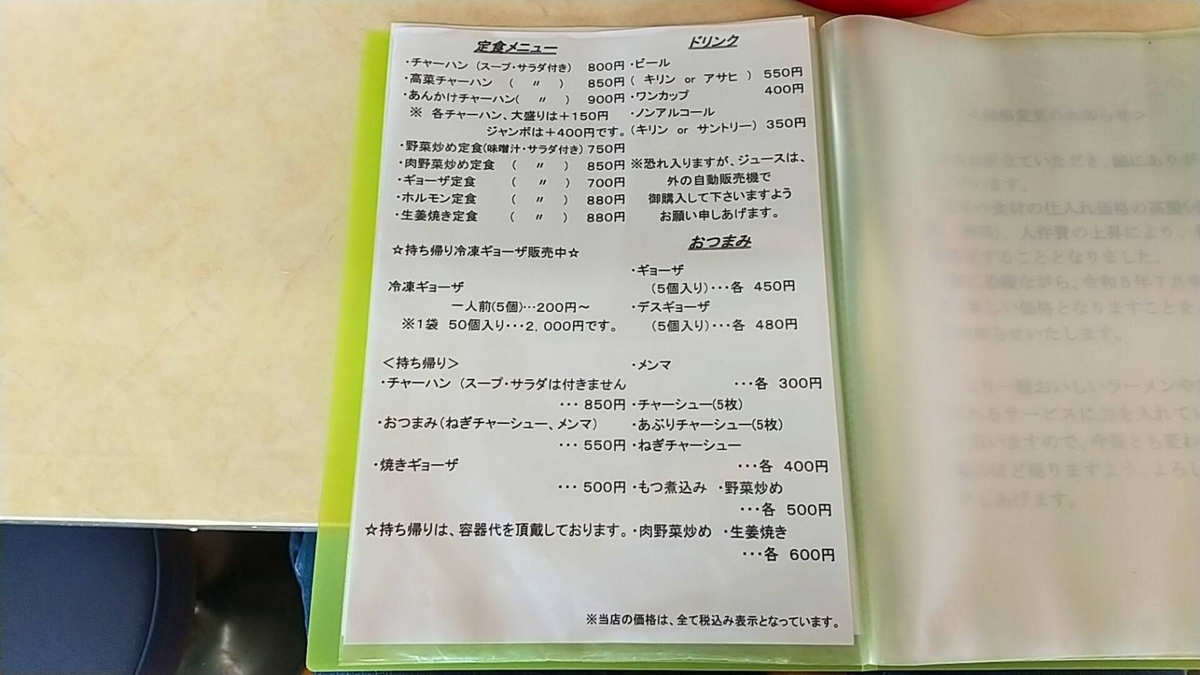 定食メニュー
・チャーハン (スープ・サラダ付き) 800円
・高菜チャーハン ( 〃 ) 850円
・あんかけチャーハン( 〃 ) 900円
※ 各チャーハン、大盛りは＋150円
ジャンボは＋400円です。
・野菜炒め定食(味噌汁・サラダ付き) 750円
・肉野菜炒め定食 ( 〃 ) 850円
・ギョーザ定食 ( 〃 ) 700円
・ホルモン定食 ( 〃 ) 880円
・生姜焼き定食 ( 〃 ) 880円
☆持ち帰り冷凍ギョーザ販売中☆
冷凍ギョーザ
一人前(5個)…200円～
※1袋 50個入り・・・2,000円です。
＜持ち帰り＞
・チャーハン (スープ・サラダは付きません
・・・ 850円
・おつまみ(ねぎチャーシュー、メンマ)
・・・ 550円
・焼きギョーザ
・・・ 500円
☆持ち帰りは、容器代を頂戴しております。
ドリンク
・ビール
( キリン or アサヒ ) 550円
・ワンカップ 400円
・ノンアルコール
(キリン or サントリー) 350円
※恐れ入りますが、ジュースは、
外の自動販売機で
御購入して下さいますよう
お願い申しあげます。
おつまみ
・ギョーザ
(5個入り)・・・各 450円
・デスギョーザ
(5個入り)・・・各 480円
・メンマ
・・・各 300円
・チャーシュー(5枚)
・あぶりチャーシュー(5枚)
・ねぎチャーシュー
・・・各 400円
・もつ煮込み ・野菜炒め
・・・各 500円
・肉野菜炒め ・生姜焼き
・・・各 600円
※当店の価格は、全て税込み表示となっています。